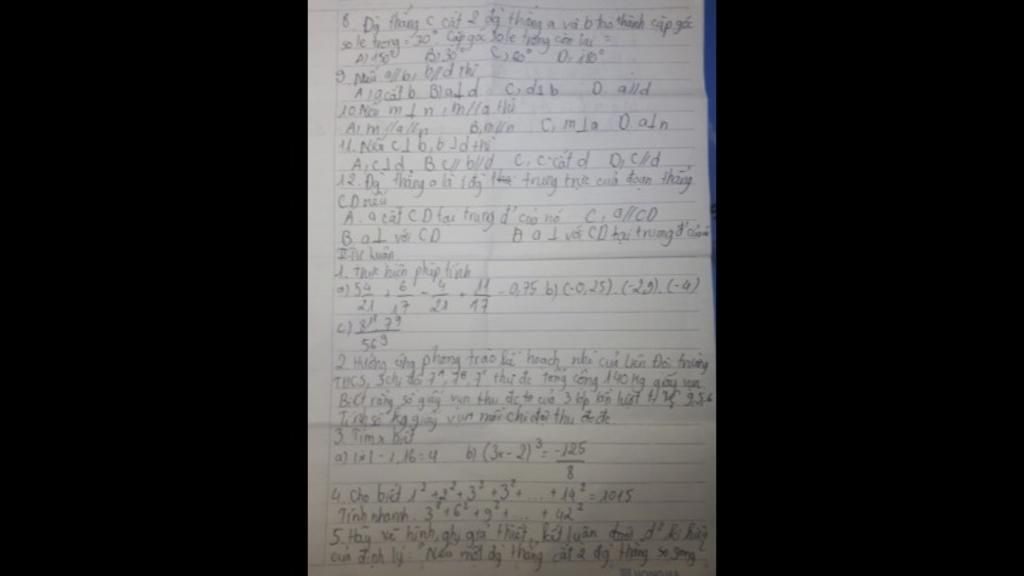 8. Đg thẳng c cắt 2 đg thẳng a và b tạo thành cặp góc
so le trong = 30°. Cặp góc so le trong còn lại =
A) 150° B, 30° C, 60° D, 180°
9. Nếu a//b, b//d thì
A, a cắt b B) a⊥d C, d⊥b D. a//d
10. Nếu m⊥n, m//a thì
A, m//a//n B, m//n C, m⊥a D. a⊥n
11. Nếu c⊥b, b⊥d thì
A, c⊥d B. c//b//d C, c cắt d D, c//d
12. Đg thẳng a là đg trung trực của đoạn thẳng
CD nếu
A. a cắt CD tại trung đ' của nó C, a//CD
B a⊥ với CD a⊥ với CD tại trung đ' của
II. Tự luận
1. Thực hiện phép tính
a) 54/21 + 6/17 - 4/21 + 11/17 - 0,75 b) (-0,25). (-2,9). (-4)
c) 7⁹/56⁹
2. Hưởng ứng phong trào kế hoạch nhỏ của Liên Đội trường
THCS, 3 chi đội 7ᴬ, 7ᴮ, 7ᶜ thu đc tổng cộng 140 kg giấy vụn
Biết rằng số giấy vụn thu đc của 3 lớp lần lượt
Tính số kg giấy vụn mỗi chi đội thu đc
3. Tìm x biết
a) |x| - 1,16 = 4 b) (3x - 2)³ = -125/8
4. Cho biết 1² + 2² + 3² + 3² + ... + 14² = 1015
Tính nhanh. 3² + 6² + 9² + ... + 42²
5. Hãy vẽ hình, ghi giả thiết, kết luận kí hiệu
của định lý: "Nếu một đg thẳng cắt 2 đg thẳng song